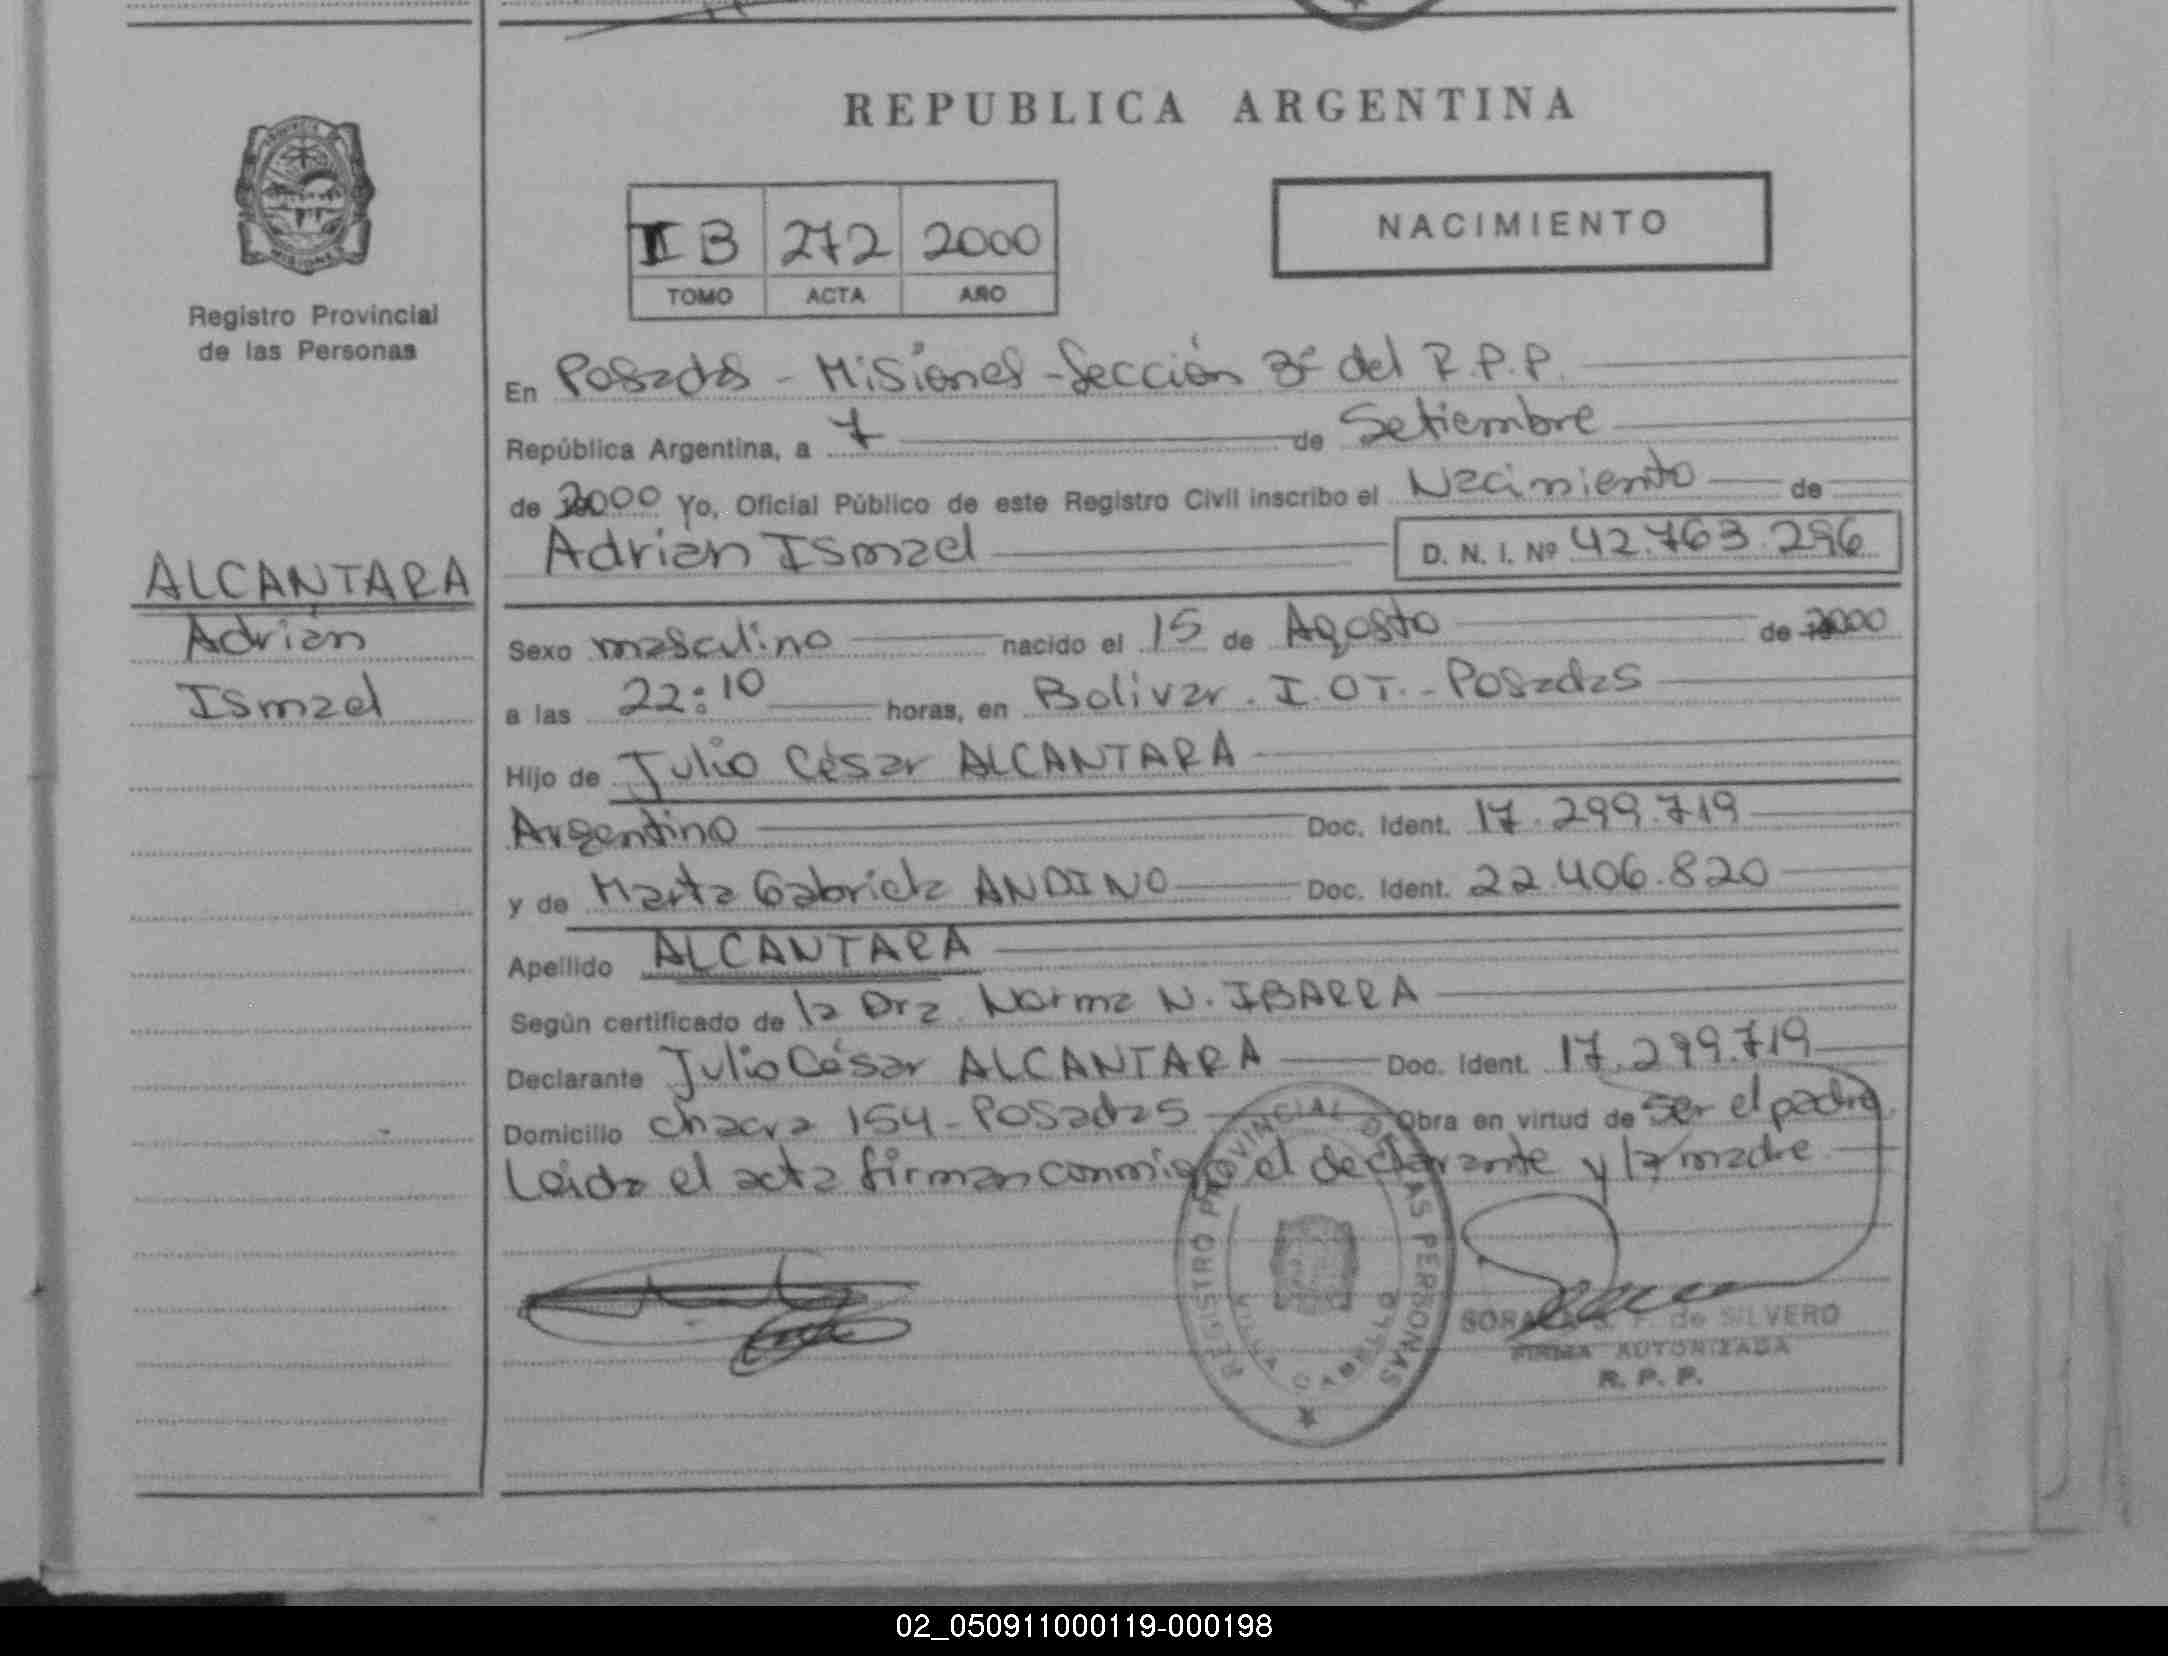 REPUBLICA ARGENTINA
IB 272 2000
TOMO ACTA AÑO
NACIMIENTO
Registro Provincial
de las Personas
ALCANTARA
Adrián
Ismael
En Posadas - Misiones - Sección 3ª del R.P.P.
República Argentina, a 7 de Setiembre
de 2000 Yo, Oficial Público de este Registro Civil inscribo el Nacimiento de
Adrián Ismael D. N. I. Nº 42.763.296
Sexo masculino nacido el 15 de Agosto de 2000
a las 22:10 horas, en Bolivar. I.OT. - Posadas
Hijo de Julio César ALCANTARA
Argentino Doc. Ident. 17.299.719
y de Marta Gabriela ANDINO Doc. Ident. 22.406.820
Apellido ALCANTARA
Según certificado de la Dra. Norma N. IBARRA
Declarante Julio César ALCANTARA Doc. Ident. 17.299.719
Domicilio chacra 154 - Posadas Obra en virtud de ser el padre.
Leída el acta firman conmigo el declarante y la madre
REGISTRO PROVINCIAL DE LAS PERSONAS
VILLA CABELLO
S. F. de SILVERO
FIRMA AUTORIZADA
R. P. P.
02_050911000119-000198